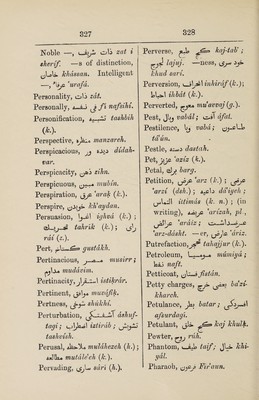 327
Noble —, ذات شريف zat i
sheríf. —s of distinction,
خاصان khássan. Intelligent
—, عرفا 'urafá.
Personality, ذات zát.
Personally, فى نفسه fi nafsihi.
Personification, تشبيه tashbíh
(k.).
Perspective, منظره manzareh.
Perspicacious, ديده ور dídah-
var.
Perspicacity, ذهن zihn.
Perspicuous, مبين mubín.
Perspiration, عرق 'arak (k.).
Perspire, خويدن kh'aydan.
Persuasion, اغوا ighwá (k.);
تحريك tahrík (k.); راى
rái (z.).
Pert, گستاخ gustákh.
Pertinacious, مصر musirr;
مداوم mudávim.
Pertinacity, استقرار istikrár.
Pertinent, موافق muváfik.
Pertness, شوخى shúkhí.
Perturbation, آشفتگى áshuf-
tagí; اضطراب iztiráb; تشويش
tashvísh.
Perusal, ملاحظه muláhezeh (h.);
مطالعه mutále'eh (k.).
Pervading, سارى sári (h.).
328
Perverse, كج طبع kaj-tab';
لجوج lajuj. —ness, خود سرى
khud sarí.
Perversion, انحراف inhiráf (k.);
احباط ihbát (k.).
Perverted, معوج mu'avvaj (g.).
Pest, وبال vabál; آفت áfat.
Pestilence, وبا vabá; طاعون
tá'ún.
Pestle, دسته dastah.
Pet, عزيز 'azíz (k.).
Petal, برگ barg.
Petition, عرض 'arz (k.); عرضى
'arzí (dah.); داعيه dá'iyeh;
التماس ittimás (k. n.); (in
writing), عريضه 'arízah, pl.,
عرائض 'aráiz; عرضداشت
'arz-dásht. —er, عارض 'áriz.
Putrefaction, تحجر tahajjur (k.).
Petroleum, موميا múmiyá;
نفط naft.
Petticoat, فستان fistán.
Petty charges, بعضى خرج ba'zí-
kharch.
Petulance, بطر batar; افسردگى
afsurdagí.
Petulant, كج خلق kej khulk.
Pewter, روح rúh.
Phantom, طيف taif; خيال khi-
yál.
Pharaoh, فرعون Fir'aun.